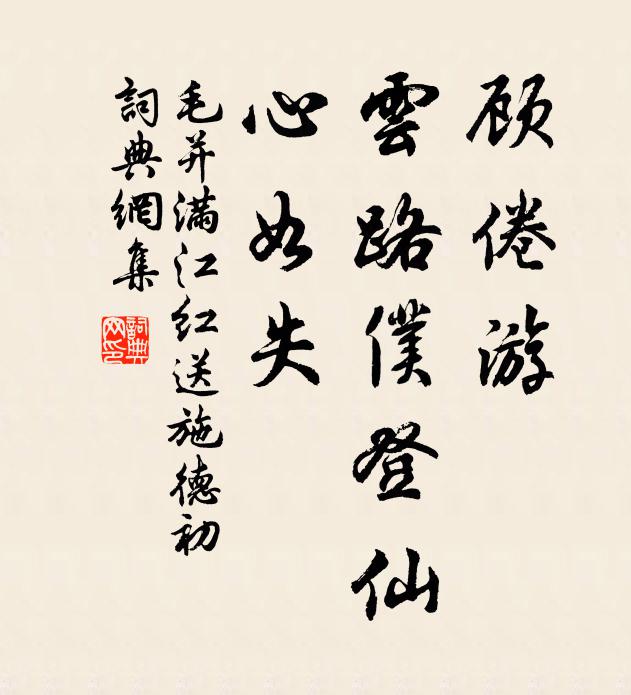 顾倦游
雲路僕登仙
心如失
毛并满江红送施德初
詞典網集
詞典
网印